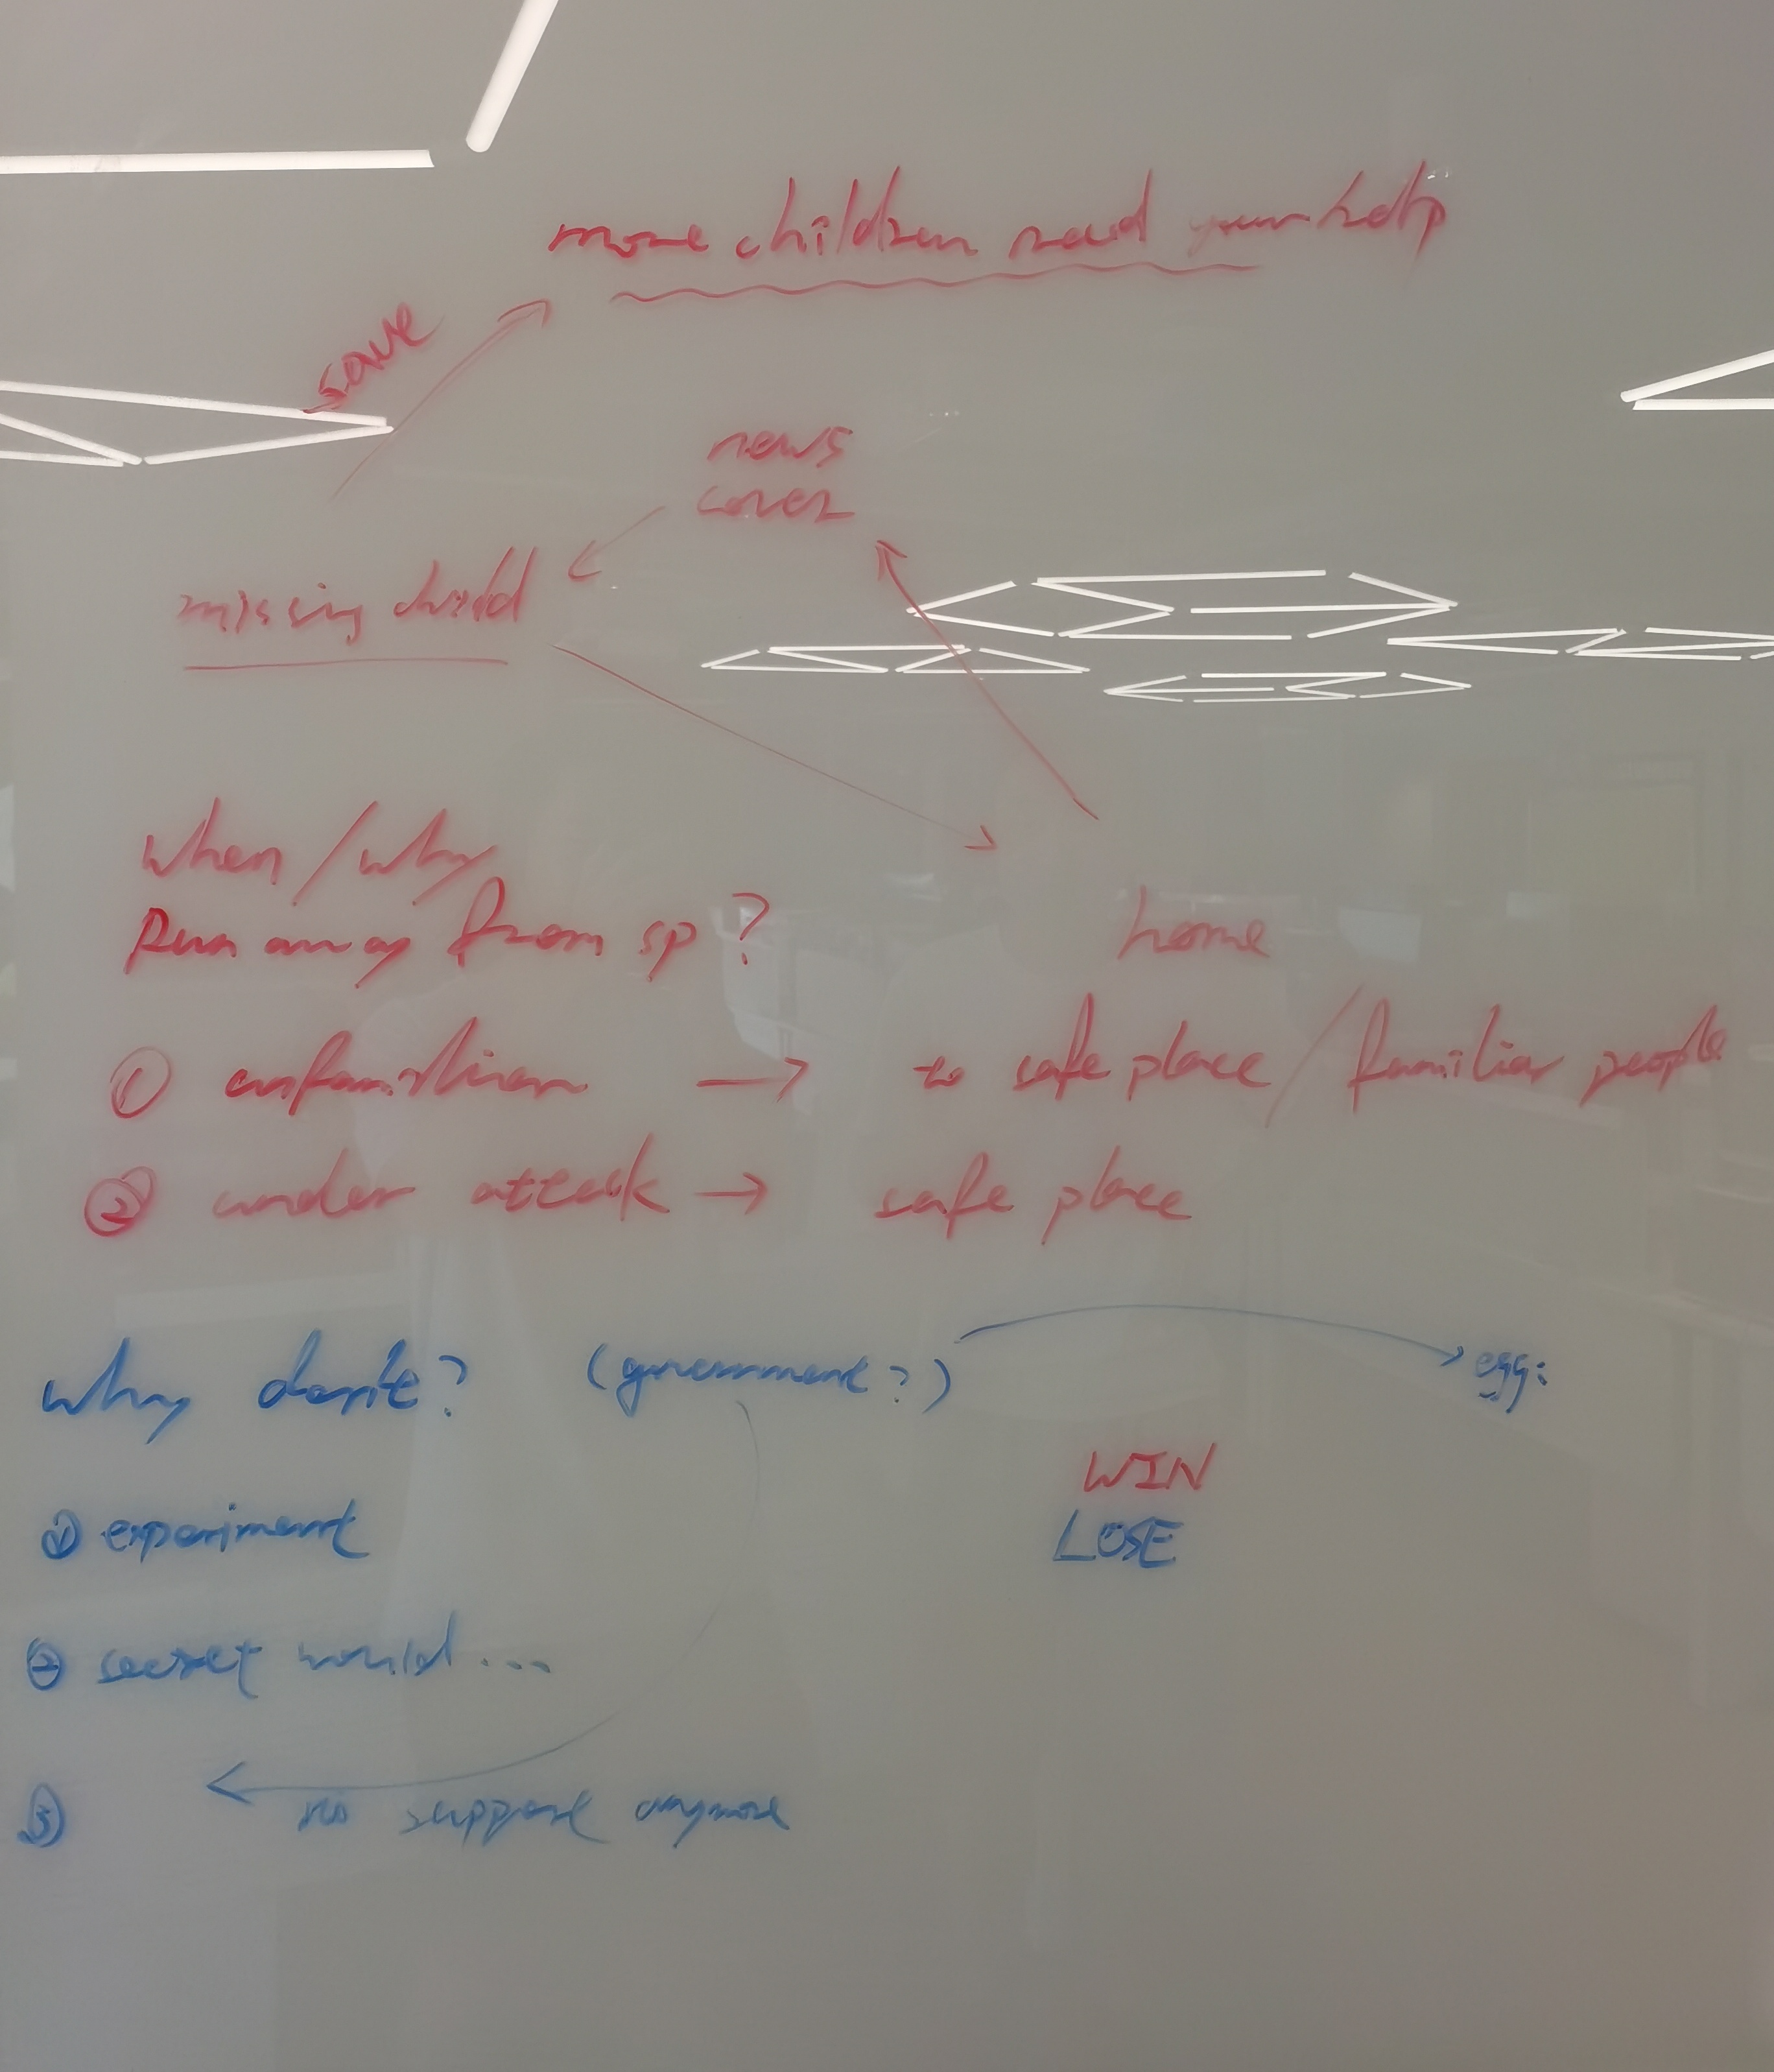 more children need your help
save
news
cover
missing child
when/why
Run away from sp?
home
① unfamiliar → to safe place/familiar people
② under attack → safe place
why don't? (government?) egg:
WIN
LOSE
① experiment
② secret would...
③ no support anymore